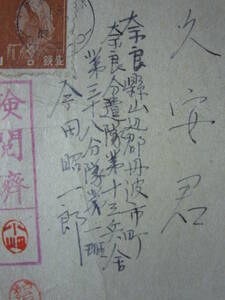 久安君
奈良縣山辺郡丹波市町
奈良分遣隊第十三兵舎
第三十八分隊第一班
今田昭一郎
検閲濟